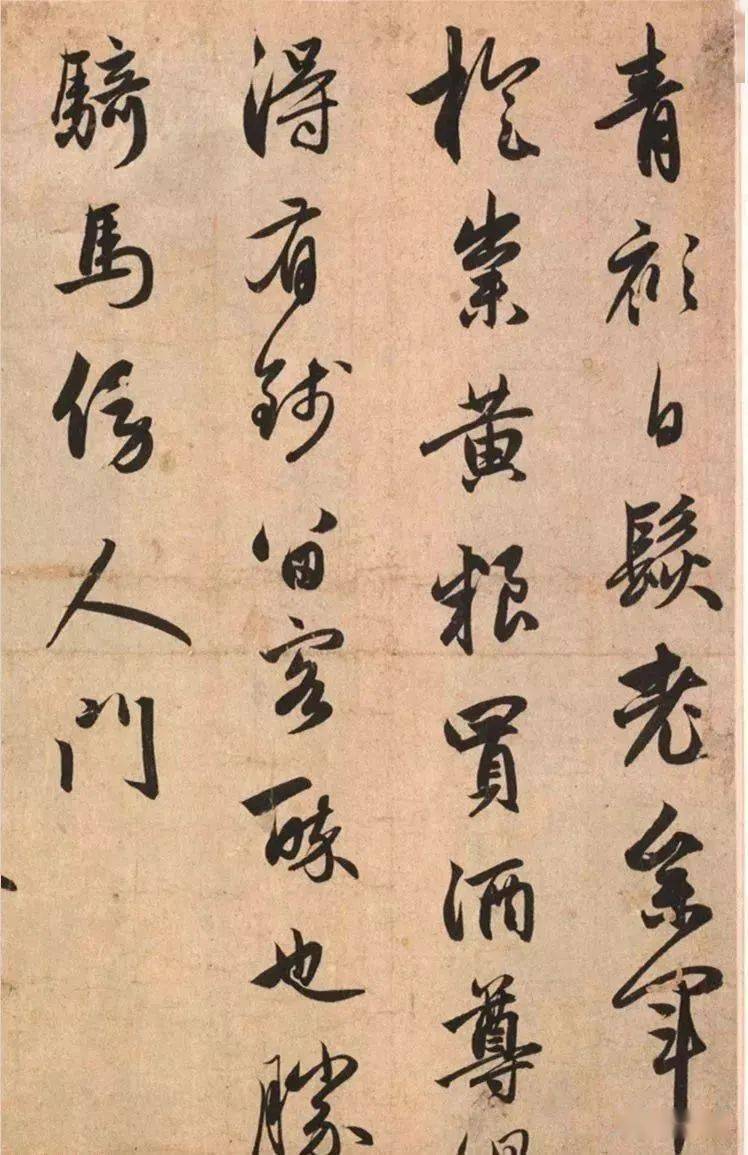 青衫白髮老參軍
旋粜黃粮買酒尊但
得有錢留客醉也勝
騎馬傍人門